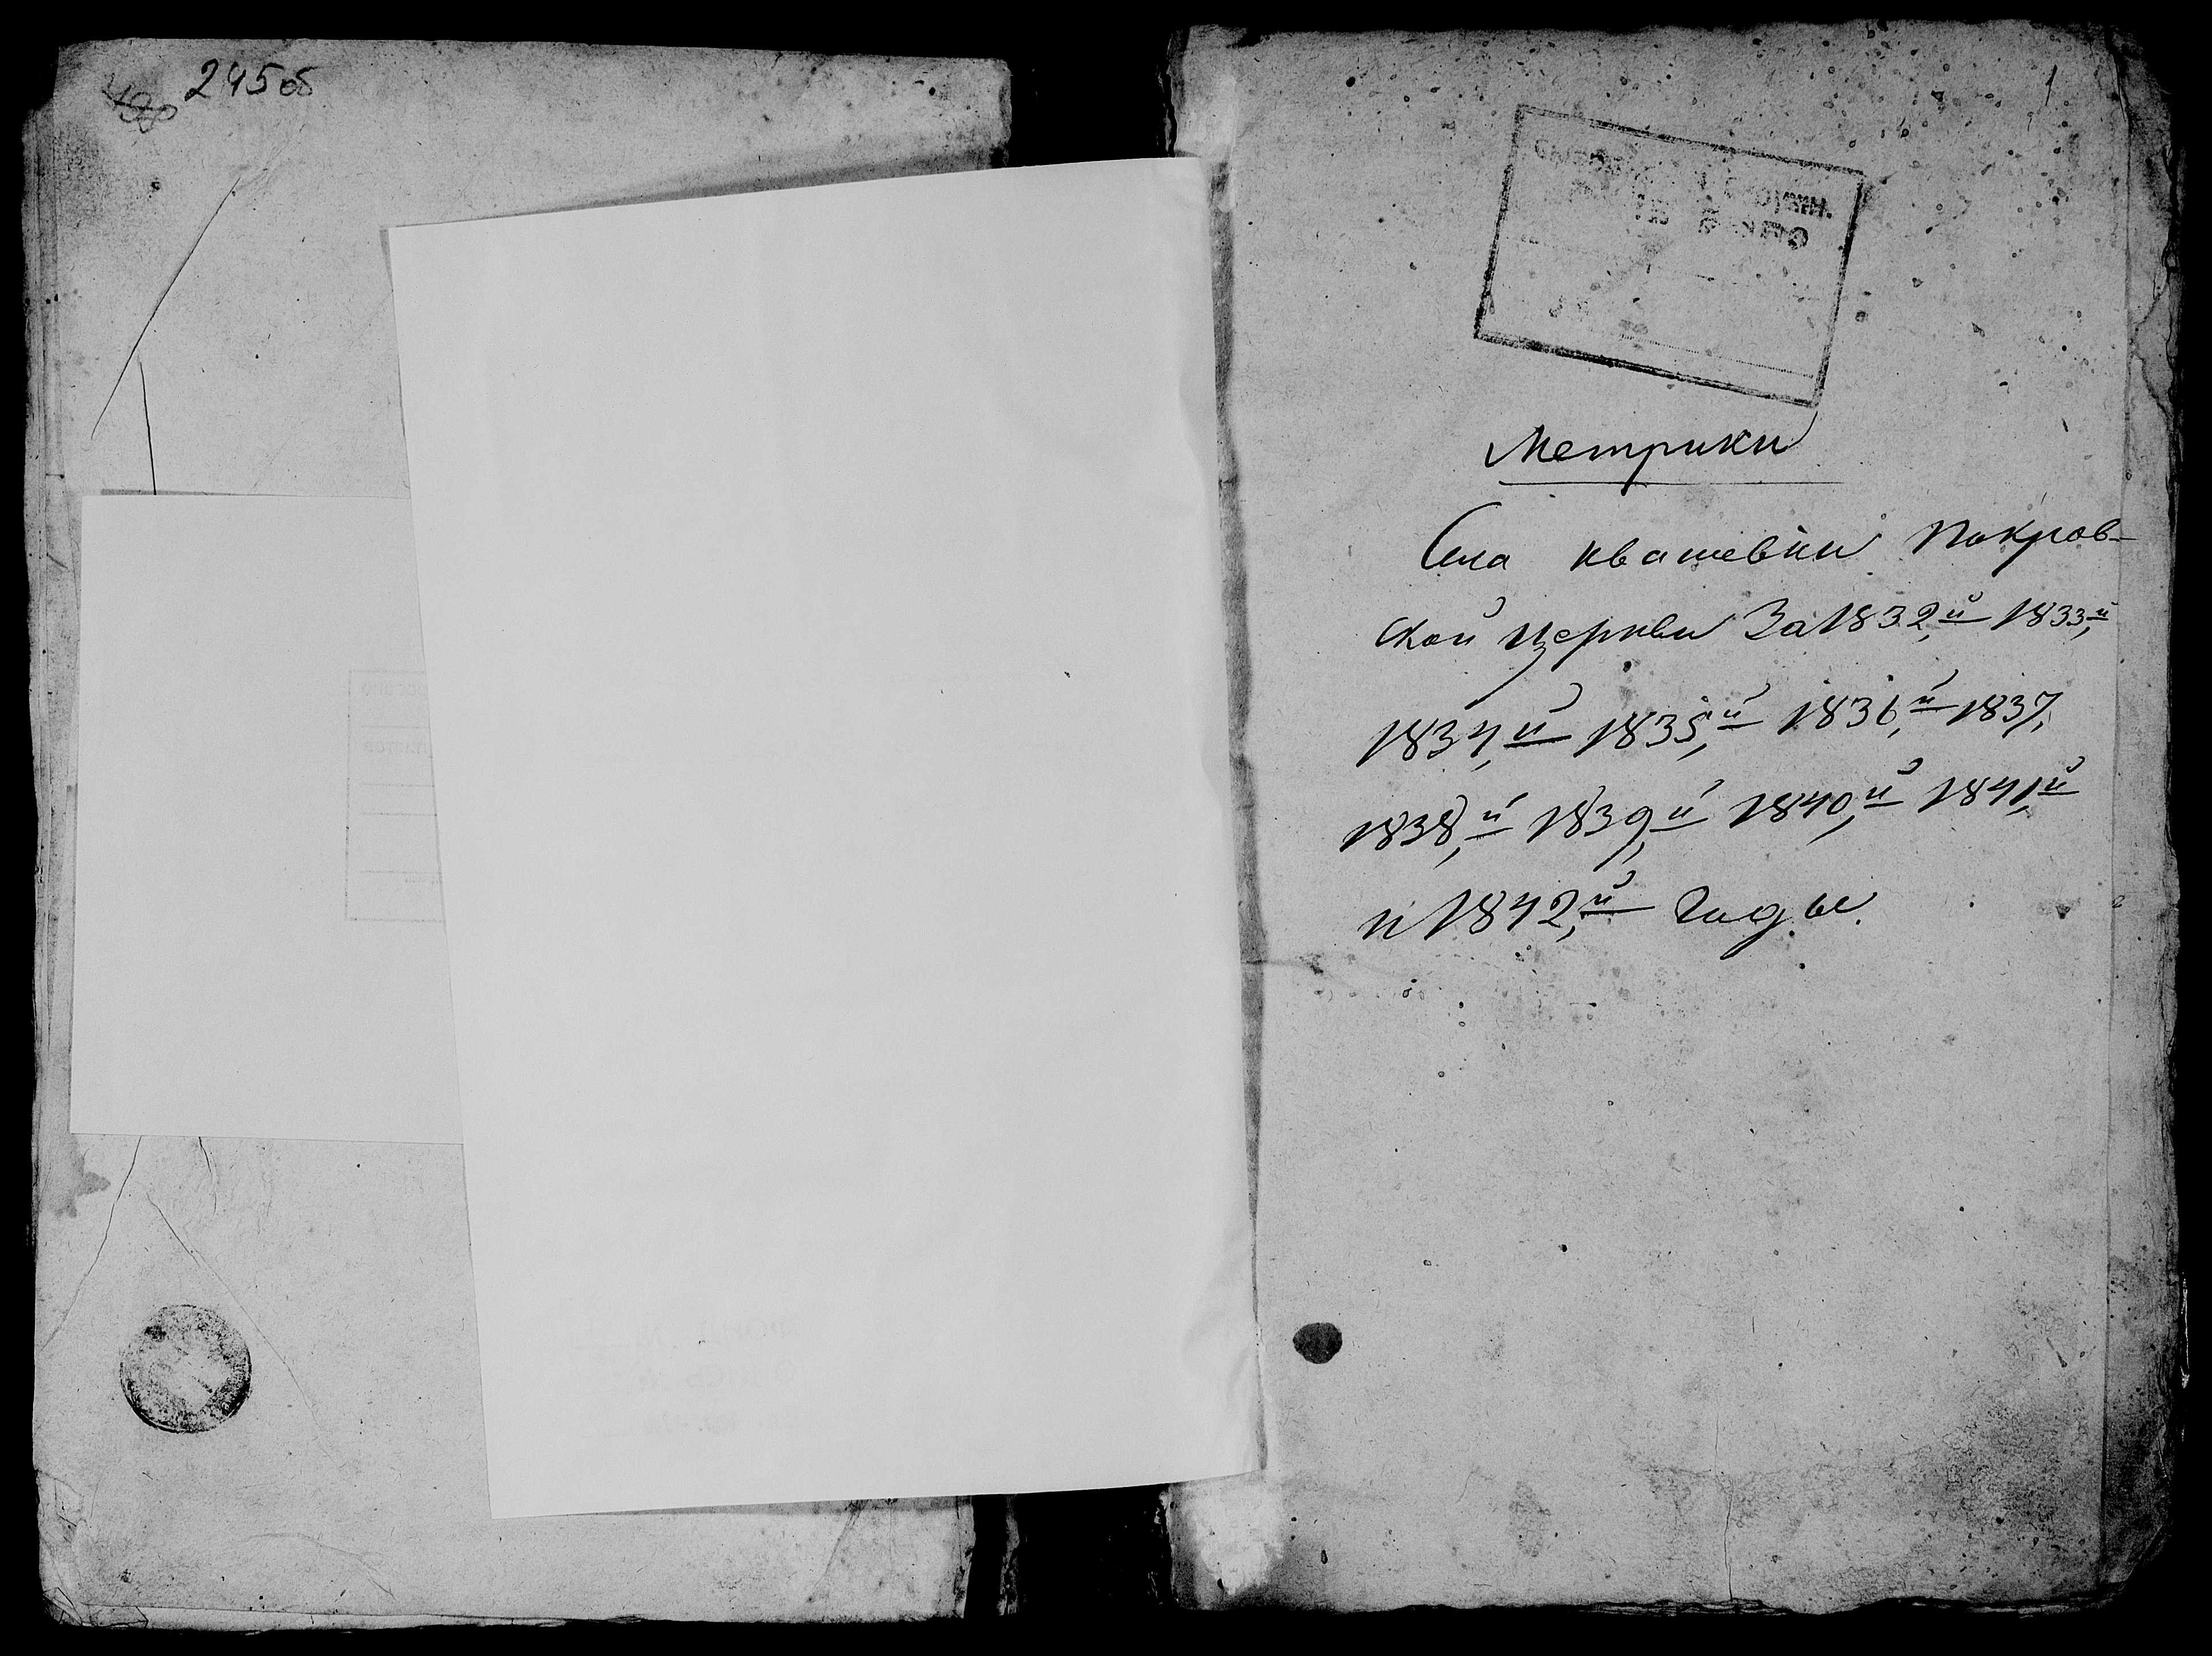 245об
1
Метрики
Села квашевки Покров-
ской церкви За 1832,й 1833,й
1834,й 1835,й 1836,й 1837,
1838,й 1839,й 1840,й 1841,й
и 1842,й Годы.